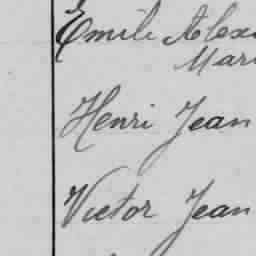 Emile Alex
Mari
Henri Jean
Victor Jean